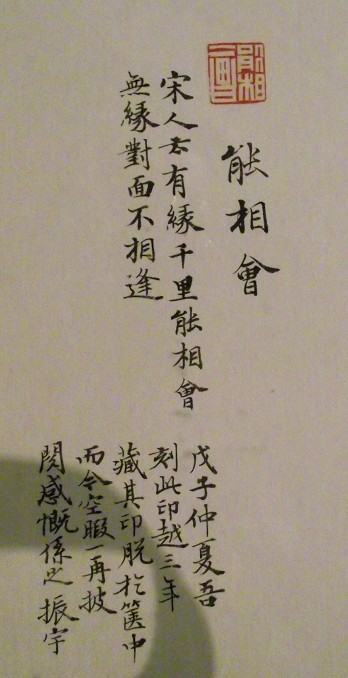 能相會
能相會
宋人云有緣千里能相會
無緣對面不相逢
戊子仲夏吾
刻此印越三年
藏其印脫於篋中
而今空暇一再披
閱感慨係之振宇